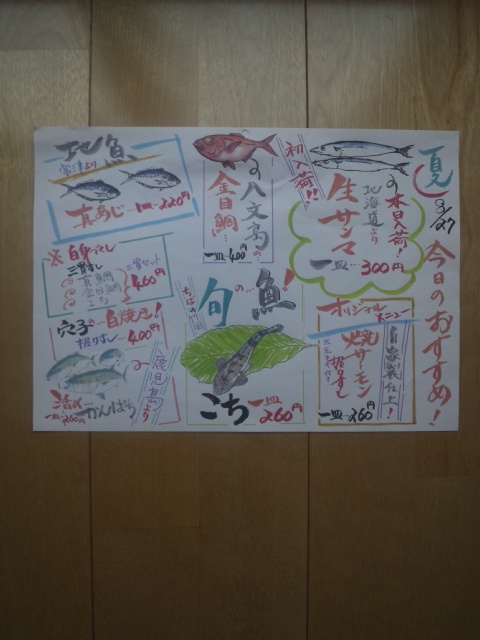 夏
8/27
今日のおすすめ!
本日入荷!
北海道より
生サンマ
一皿…300円
オリジナルメニュー
自家製仕上!
焼サーモン
握りずし
一皿…260円
初入荷!!
八丈島の
金目鯛…
一皿…400円
旬の…魚!
こち
一皿…260円
地魚
真あじ…一皿…220円
※白身づくし
三貫ずし
三貫セット
真鯛
金目鯛
こち
460円
穴子…白焼き!
握りずし
400円
鹿児島より
活〆…かんぱち
一皿…260円